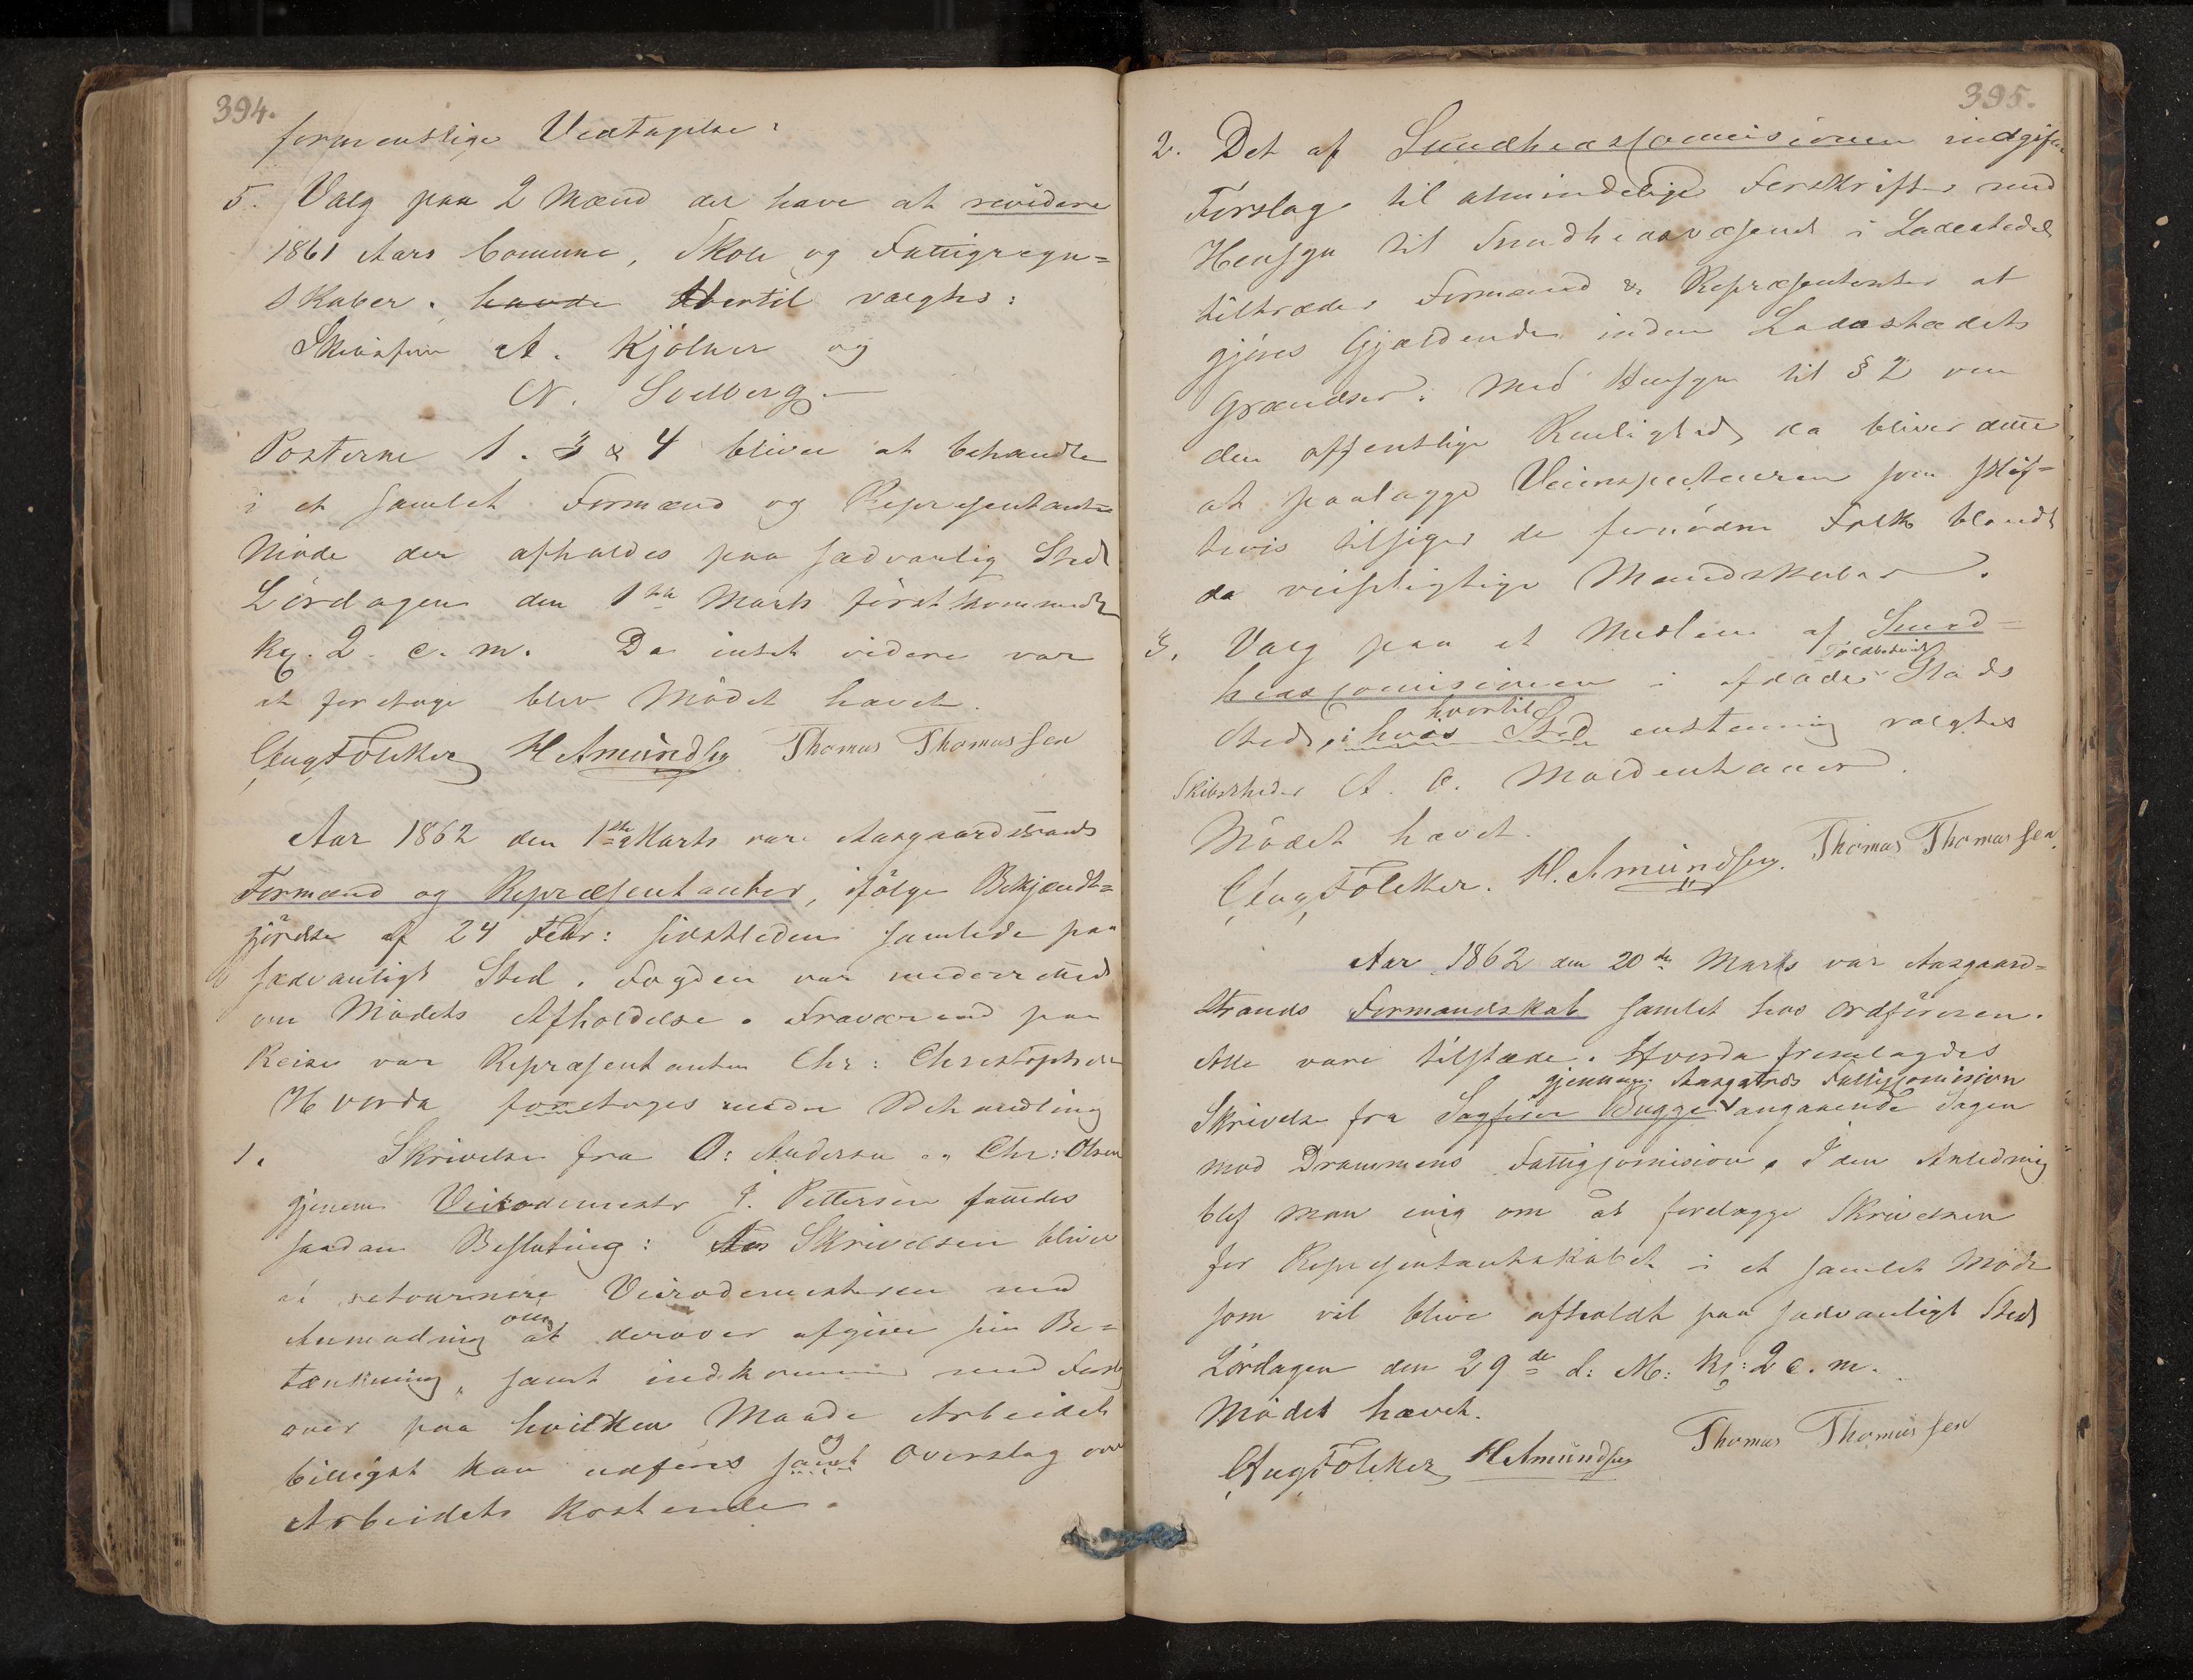 394.
formentlige Vedtagelse:
5. Valg paa 2 Mænd der have at revidere
1861 Aars Comune, Skole og Fattigregn=
skaber. havde Hvertil valgtes:
A. Kjølner og
N. Solberg.
Posterne 1. 3 & 4 bliver at behandle
i et samlet Formænd og Represententant
Møde der afholdes paa sædvanlig Sted
Lørdagen den 1ste Marts førstkommende
Kl. 2 e. m. Da intet videre var
at foretage blev Mødet hævet.
Aug Følcker H Amundsen Thomas Thomassen
Aar 1862 den 1ste Marts vare Aasgaardstrands
Formænd og Repræsentanter, ifølge Bekjendt=
gjørelse af 24 Febr: sidstleden samlede paa
sædvanligt Sted. Fogden var underrettet
om Mødets Afholdelse. Fraværend paa
Reise var Repræsentanten Chr: Christophersen
Hvorda foretoges under Behandling
1. Skrivelse fra O: Andersen og Chr: Olsen
gjenem Veirodemester J. Pettersen fattedes
saadan Beslutning: Skrivelsen bliver
at retournere Veirodemesteren med
Anmodning om at derover afgive sin Be=
tænkning, samt indkomme med Forslag
over paa hvilken Maade Arbeidet
billigst kan udføres samt og Overslag over
Arbeidets Kostende.
395.
2. Det af Sundhedscomisionen indgifne
Forslag til almindelige Forskrifter med
Hensyn til Sundhedsvæsenet i Ladestedet
tiltræder Formænd & Repræsentanter at
gjøres Gjældende inden Ladestædets
Grændser. Med Hensyn til § 2 om
den offentlige Renlighed da bliver dette
at paalægge Veiinspecteuren som skif=
tevis tilsiger de fornødne Folk blandt
de veipligtige Mandskaber.
3. Valg paa et Medlem af Sund=
hedscomisionen i afdøde Stads
Sted, i hvis Sted hvortil enstemig valgtes
Skibsrheder A. C. Moldenhauer.
Mødet hævet.
Aug Følcker. H. Amundsen. Thomas Thomassen.
Aar 1862 den 20de Marts var Aasgaard=
strands Formandskab samlet hos Ordføreren.
Alle vare tilstæde. Hvorda fremlagdes
gjennem Aasgaards Fattigcomision
Skrivelse fra Sagfører Bugge angaaende Sagen
mod Drammens Fattigcomision. I den Anledning
blef man enig om at forelægge Skrivelsen
for Represententantskabet i et samlet Møde
som vil blive afholdt paa sædvanligt Sted
Lørdagen den 29de d: M: Kl: 2 e. m.
Mødet hævet.
Aug Følcker H Amundsen Thomas Thomassen